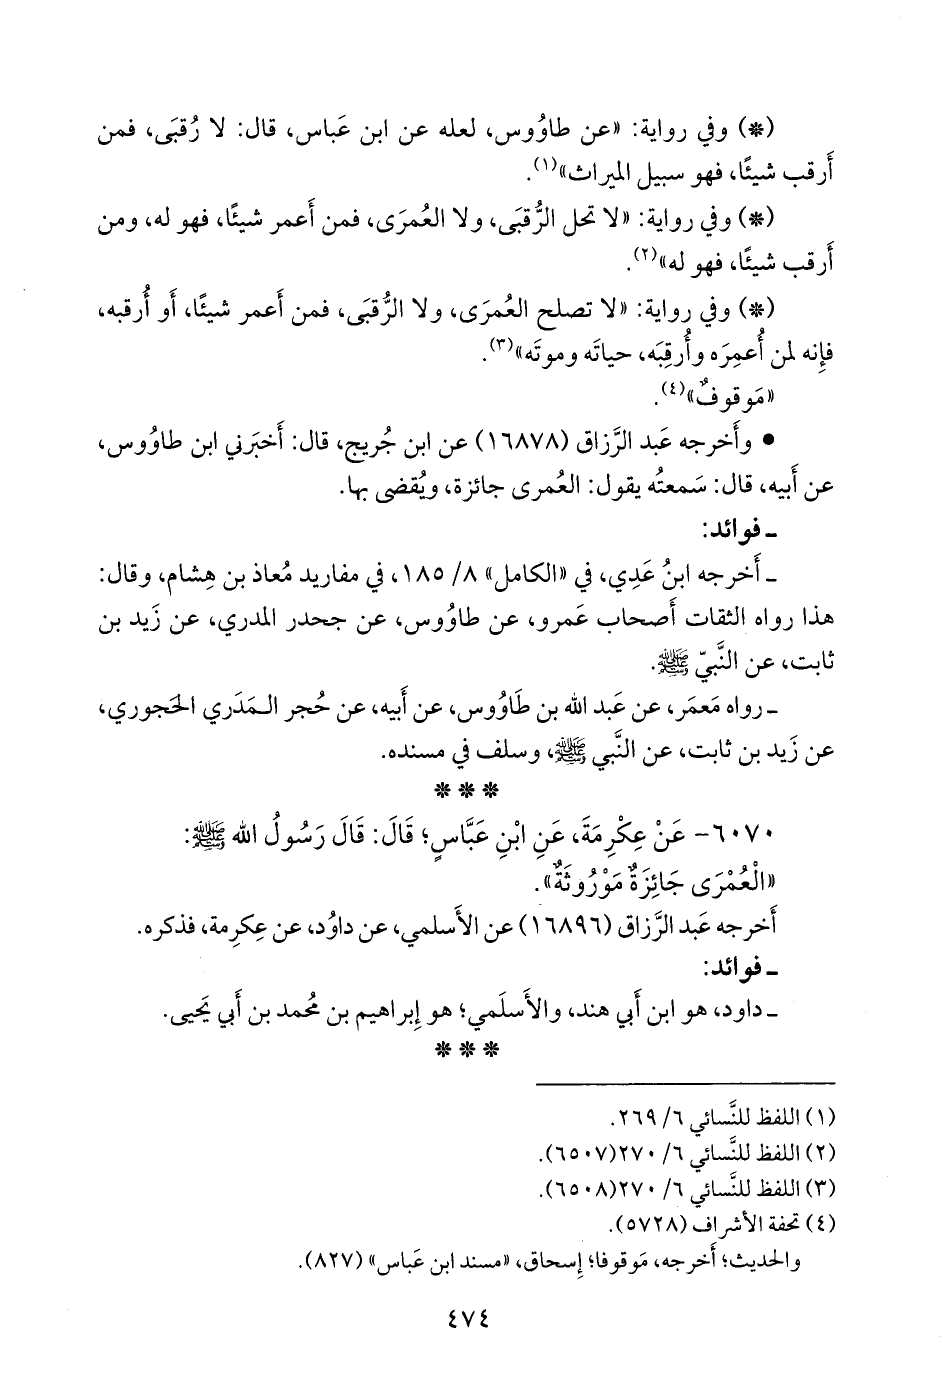 (*) وفي رواية: «عن طاوُوس، لعله عن ابن عَباس، قال: لا رُقبَى، فمن
أَرقب شيئًا، فهو سبيل الميراث»(١).
(*) وفي رواية: «لا تحل الرُّقبَى، ولا العُمرَى، فمن أَعمر شيئًا، فهو له، ومن
أَرقب شيئًا، فهو له»(٢).
(*) وفي رواية: «لا تصلح العُمرَى، ولا الرُّقبَى، فمن أَعمر شيئًا، أَو أُرقبه،
فإِنه لمن أُعمِرَه وأُرقِبَه، حياتَه وموتَه»(٣).
«مَوقوفٌ»(٤).
• وأَخرجه عَبد الرَّزاق (١٦٨٧٨) عن ابن جُريج، قال: أَخبَرني ابن طاوُوس،
عن أَبيه، قال: سَمعتُه يقول: العُمرى جائزة، ويُقضى بها.
ـ فوائد:
ـ أَخرجه ابنُ عَدِي، في «الكامل» ٨/ ١٨٥، في مفاريد مُعاذ بن هِشام، وقال:
هذا رواه الثقات أَصحاب عَمرو، عن طاوُوس، عن جحدر المدري، عن زَيد بن
ثابت، عن النَّبيّ ﷺ.
ـ رواه مَعمَر، عن عَبد الله بن طَاوُوس، عن أَبيه، عن حُجر الـمَدَري الحَجوري،
عن زَيد بن ثابت، عن النَّبي ﷺ، وسلف في مسنده.
* * *
٦٠٧٠- عَنْ عِكْرِمَةَ، عَنِ ابْنِ عَبَّاسٍ؛ قَالَ: قَالَ رَسُولُ الله ﷺ:
«الْعُمْرَى جَائِزَةٌ مَوْرُوثَةٌ».
أَخرجه عَبد الرَّزاق (١٦٨٩٦) عن الأَسلمي، عن داوُد، عن عِكرِمة، فذكره.
ـ فوائد:
ـ داود، هو ابن أَبي هند، والأَسلَمي؛ هو إِبراهيم بن مُحمد بن أَبي يَحيى.
* * *
(١) اللفظ للنَّسائي ٦/ ٢٦٩.
(٢) اللفظ للنَّسائي ٦/ ٢٧٠(٦٥٠٧).
(٣) اللفظ للنَّسائي ٦/ ٢٧٠(٦٥٠٨).
(٤) تحفة الأشراف (٥٧٢٨).
والحديث؛ أَخرجه، مَوقوفا؛ إِسحاق، «مسند ابن عَباس» (٨٢٧).
٤٧٤